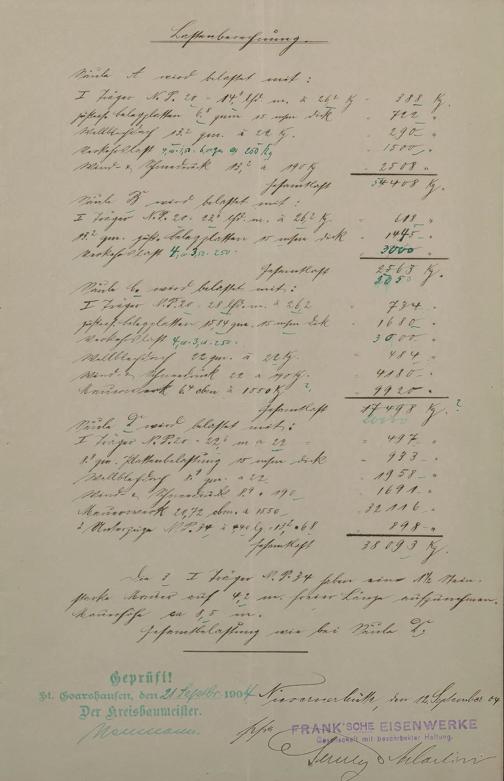 Lastenberechnung.
Säule A wird belastet mit:
I Träger N.P. 20 - 14,8 lfd. m. à 26,2 Kg - 388 Kg.
belagplatten 15 m/m dick - 722 "
Wellblechdach 13,2 qm. à 22 Kg. - 290 "
Verkehrslast 4,0.3,0. 250 Kg - 1500 "
Wind- & Schneedruck 13,2 " à 190 Kg - 2508 "
Gesamtlast 5408 Kg.
Säule B wird belastet mit:
I Träger N.P. 20 - lfd. m. à 26,2 Kg. - 618 "
qm. belagplatten 15 m/m dick - 1445 "
Verkehrslast 4,0.3,0.250. 3000 "
Gesamtlast 2563 Kg.
5050
Säule C wird belastet mit:
I Träger N.P. 20 - 28 lfd. m. à 26,2 - 734 "
belagplatten 15,84 qm. 15 m/m dick - 1680 "
Verkehrslast 4,0.3,0.250. 3000 "
Wellblechdach 22 qm. à 22 Kg. - 484 "
Wind- & Schneedruck 22 à 190 Kg. - 4180 "
Mauerwerk 6,4 cbm à 1550 Kg ? - 9920 "
Gesamtlast 17498 Kg. ?
Säule D wird belastet mit:
I Träger N.P. 20 - 22,6 m à 22 - 497 "
qm. Plattenbelastung 15 m/m dick - 933 "
Wellblechdach 8,9 qm. à 22 - 1958 "
Wind- & Schneedruck 8,9 à 190 - 1691 "
Mauerwerk 20,72 cbm. à 1550 - 32116 "
2 Unterzüge N.P. 34 à 440 Kg. - 898 "
Gesamtlast 38093 Kg.
Die 3 I Träger N.P. 34 haben eine 1½ Stein
starke Mauer auf 4,2 m. freier Länge aufzunehmen.
Mauerhöhe ca 8,5 m.
Gesamtbelastung wie bei Säule D.
Geprüft!
St. Goarshausen, den 21 Septbr. 1904
Der Kreisbaumeister.
Naumann.
Nievernerhütte, den 12. September 04
ppa
FRANK'SCHE EISENWERKE
Gesellschaft mit beschränkter Haftung.